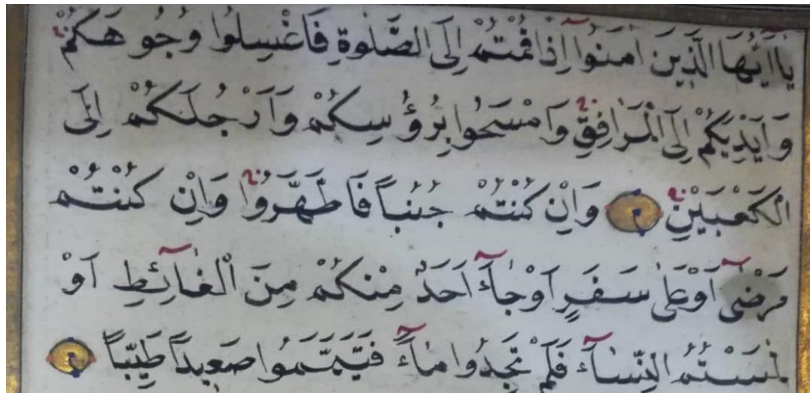 يَاۤ اَيُّهَا الَّذِينَ اٰمَنُوۤا اِذَا قُمْتُمْ اِلَى الصَّلٰوةِ فَاغْسِلُوا وُجُوهَكُمْ
وَاَيْدِيَكُمْ اِلَى الْمَرَافِقِ وَامْسَحُوا بِرُؤُسِكُمْ وَاَرْجُلَكُمْ اِلَى
الْكَعْبَيْنِ وَاِنْ كُنْتُمْ جُنُبًا فَاطَّهَّرُوا وَاِنْ كُنْتُمْ
مَرْضٰۤى اَوْ عَلٰى سَفَرٍ اَوْ جَاۤءَ اَحَدٌ مِنْكُمْ مِنَ الْغَاۤئِطِ اَوْ
لٰمَسْتُمُ النِّسَاۤءَ فَلَمْ تَجِدُوا مَاۤءً فَتَيَمَّمُوا صَعِيدًا طَيِّبًا